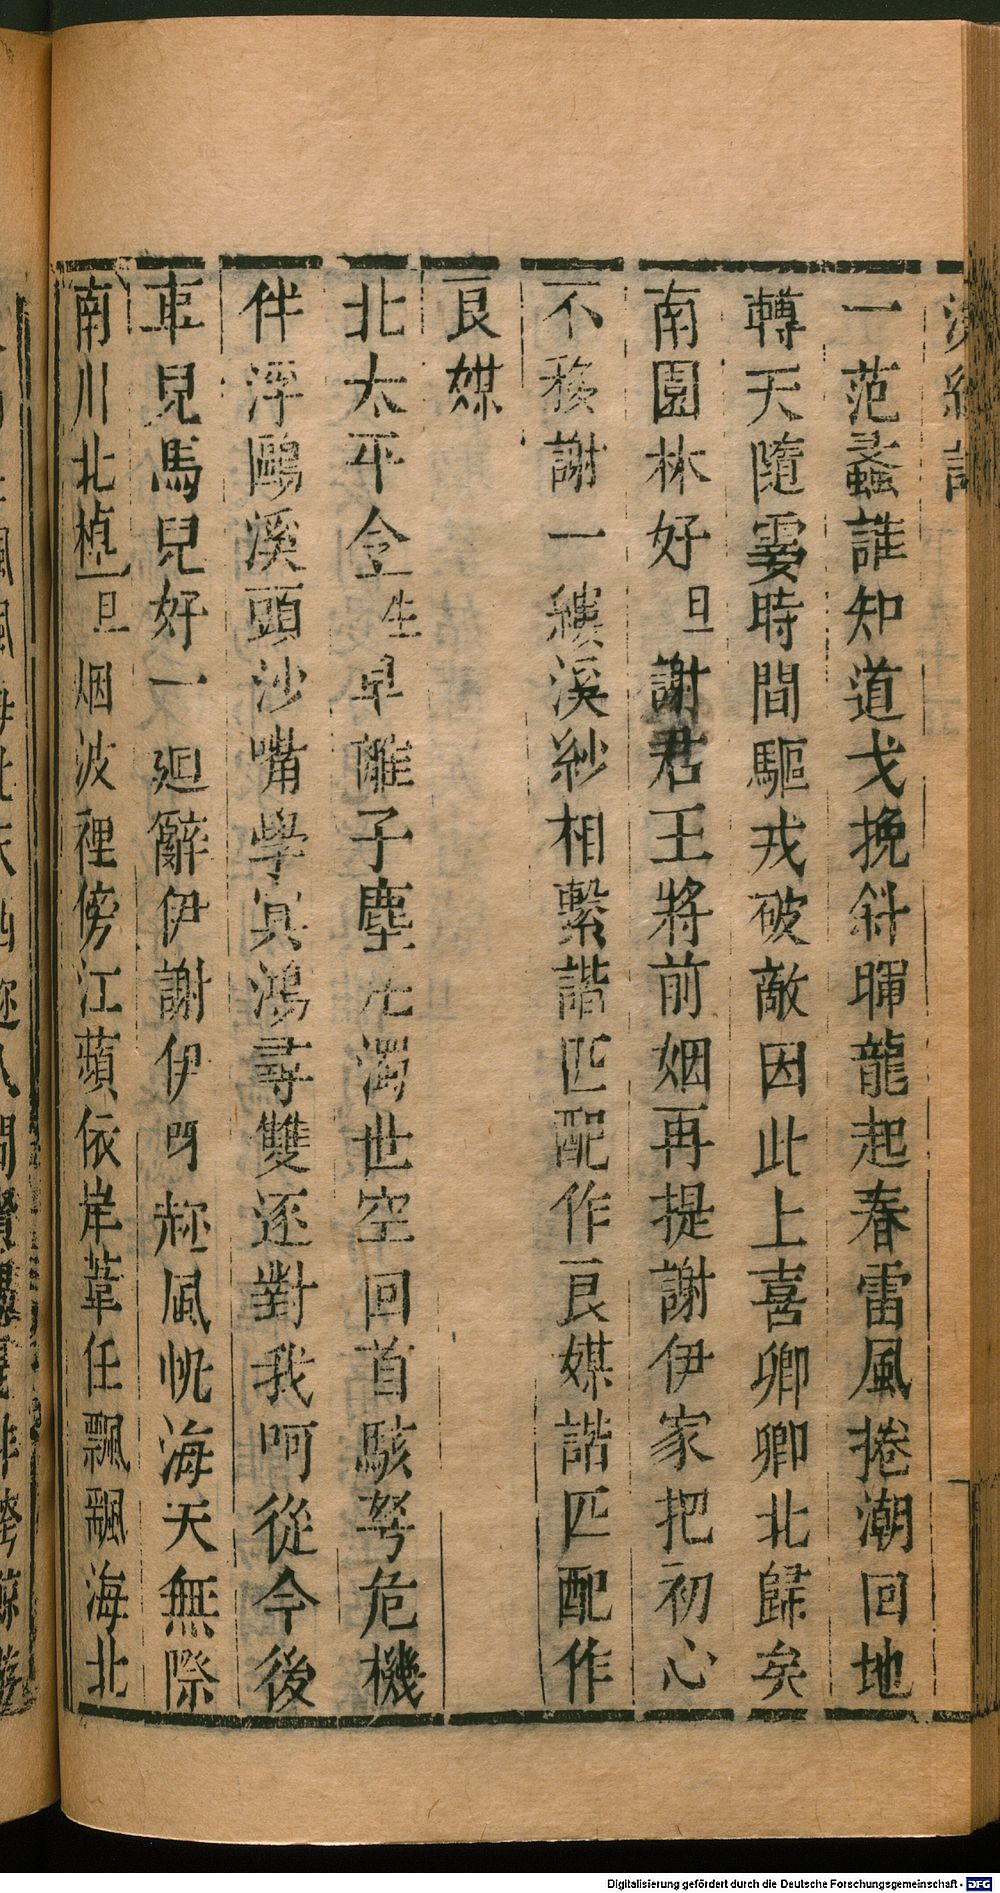 一范蠡誰知道戈挽斜暉龍起春雷風捲潮回地
轉天隨霎時間驅戎破敵因此上喜卿卿北歸矣
南園林好旦謝君王將前姻再提謝伊家把初心
不移謝一縷溪紗相繫諧匹配作良媒諧匹配作
良媒
北太平令生早離子塵凡濁世空回首駭弩危機
伴浮鷗溪頭沙嘴學冥鴻尋雙逐對我呵從今後
車兒馬兒好一廻辭伊謝伊呀趂風帆海天無際
南川北棹旦烟波裡傍江蘋依岸葦任飄飄海北
Digitalisierung gefördert durch die Deutsche Forschungsgemeinschaft - DFG